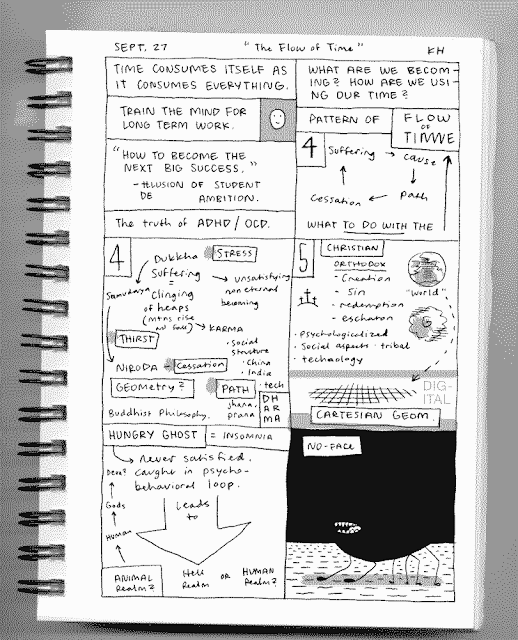 SEPT. 27 "The Flow of Time" KH
TIME CONSUMES ITSELF AS
IT CONSUMES EVERYTHING.
TRAIN THE MIND FOR
LONG TERM WORK.
"HOW TO BECOME THE
NEXT BIG SUCCESS."
- ILLUSION OF STUDENT
DE AMBITION.
The truth of ADHD / OCD.
WHAT ARE WE BECOM-
ING? HOW ARE WE USI-
NG OUR TIME?
PATTERN OF FLOW
OF
TIME
4 Suffering → cause
Cessation ← Path
WHAT TO DO WITH THE
4
Dukkha STRESS
Suffering → unsatisfying
= non eternal
becoming
Samudaya Clinging
of heaps
(mtns rise
and fall) → KARMA
THIRST
• Social
structure
• China
• India
NIRODA - Cessation
GEOMETRY? PATH • tech
jhana,
prana
DH
AR
MA
Buddhist Philosophy.
5 CHRISTIAN
ORTHODOX
- Creation
- Sin
- redemption
- eschaton
"World"
• Psychologicalized
• Social aspects • tribal
• technology
DIG-
ITAL
CARTESIAN GEOM.
HUNGRY GHOST = INSOMNIA
→ Never satisfied.
Caught in psycho-
behavioral loop.
Deva?
Gods
Human
Leads
to
ANIMAL
Realm?
Hell
Realm
OR
HUMAN
Realm?
NO-FACE